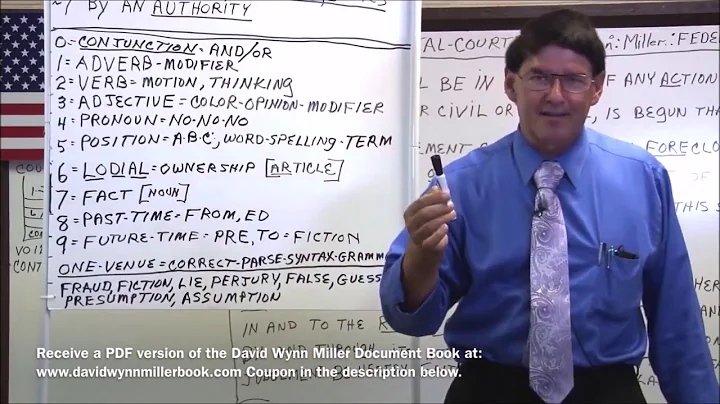 BY AN AUTHORITY
0=CONJUNCTION=AND/OR
1=ADVERB=MODIFIER
2=VERB=MOTION, THINKING
3=ADJECTIVE=COLOR-OPINION-MODIFIER
4=PRONOUN=NO-NO-NO
5=POSITION=A-B-C, WORD-SPELLING-TERM
6=LODIAL=OWNERSHIP [ARTICLE]
7=FACT [NOUN]
8=PAST-TIME=FROM, ED
9=FUTURE-TIME=PRE, TO=FICTION
ONE-VENUE=CORRECT-PARSE-SYNTAX-GRAMM
FRAUD, FICTION, LIE, PERJURY, FALSE, GUESS
PRESUMPTION, ASSUMPTION
AL-COURT
:Miller.:FEDE
L BE IN
F ANY ACTION
R CIVIL OR
, IS BEGUN THA
EMENT
FORECLO
OF
THIS S
IN AND TO THE
Receive a PDF version of the David Wynn Miller Document Book at:
www.davidwynnmillerbook.com Coupon in the description below.